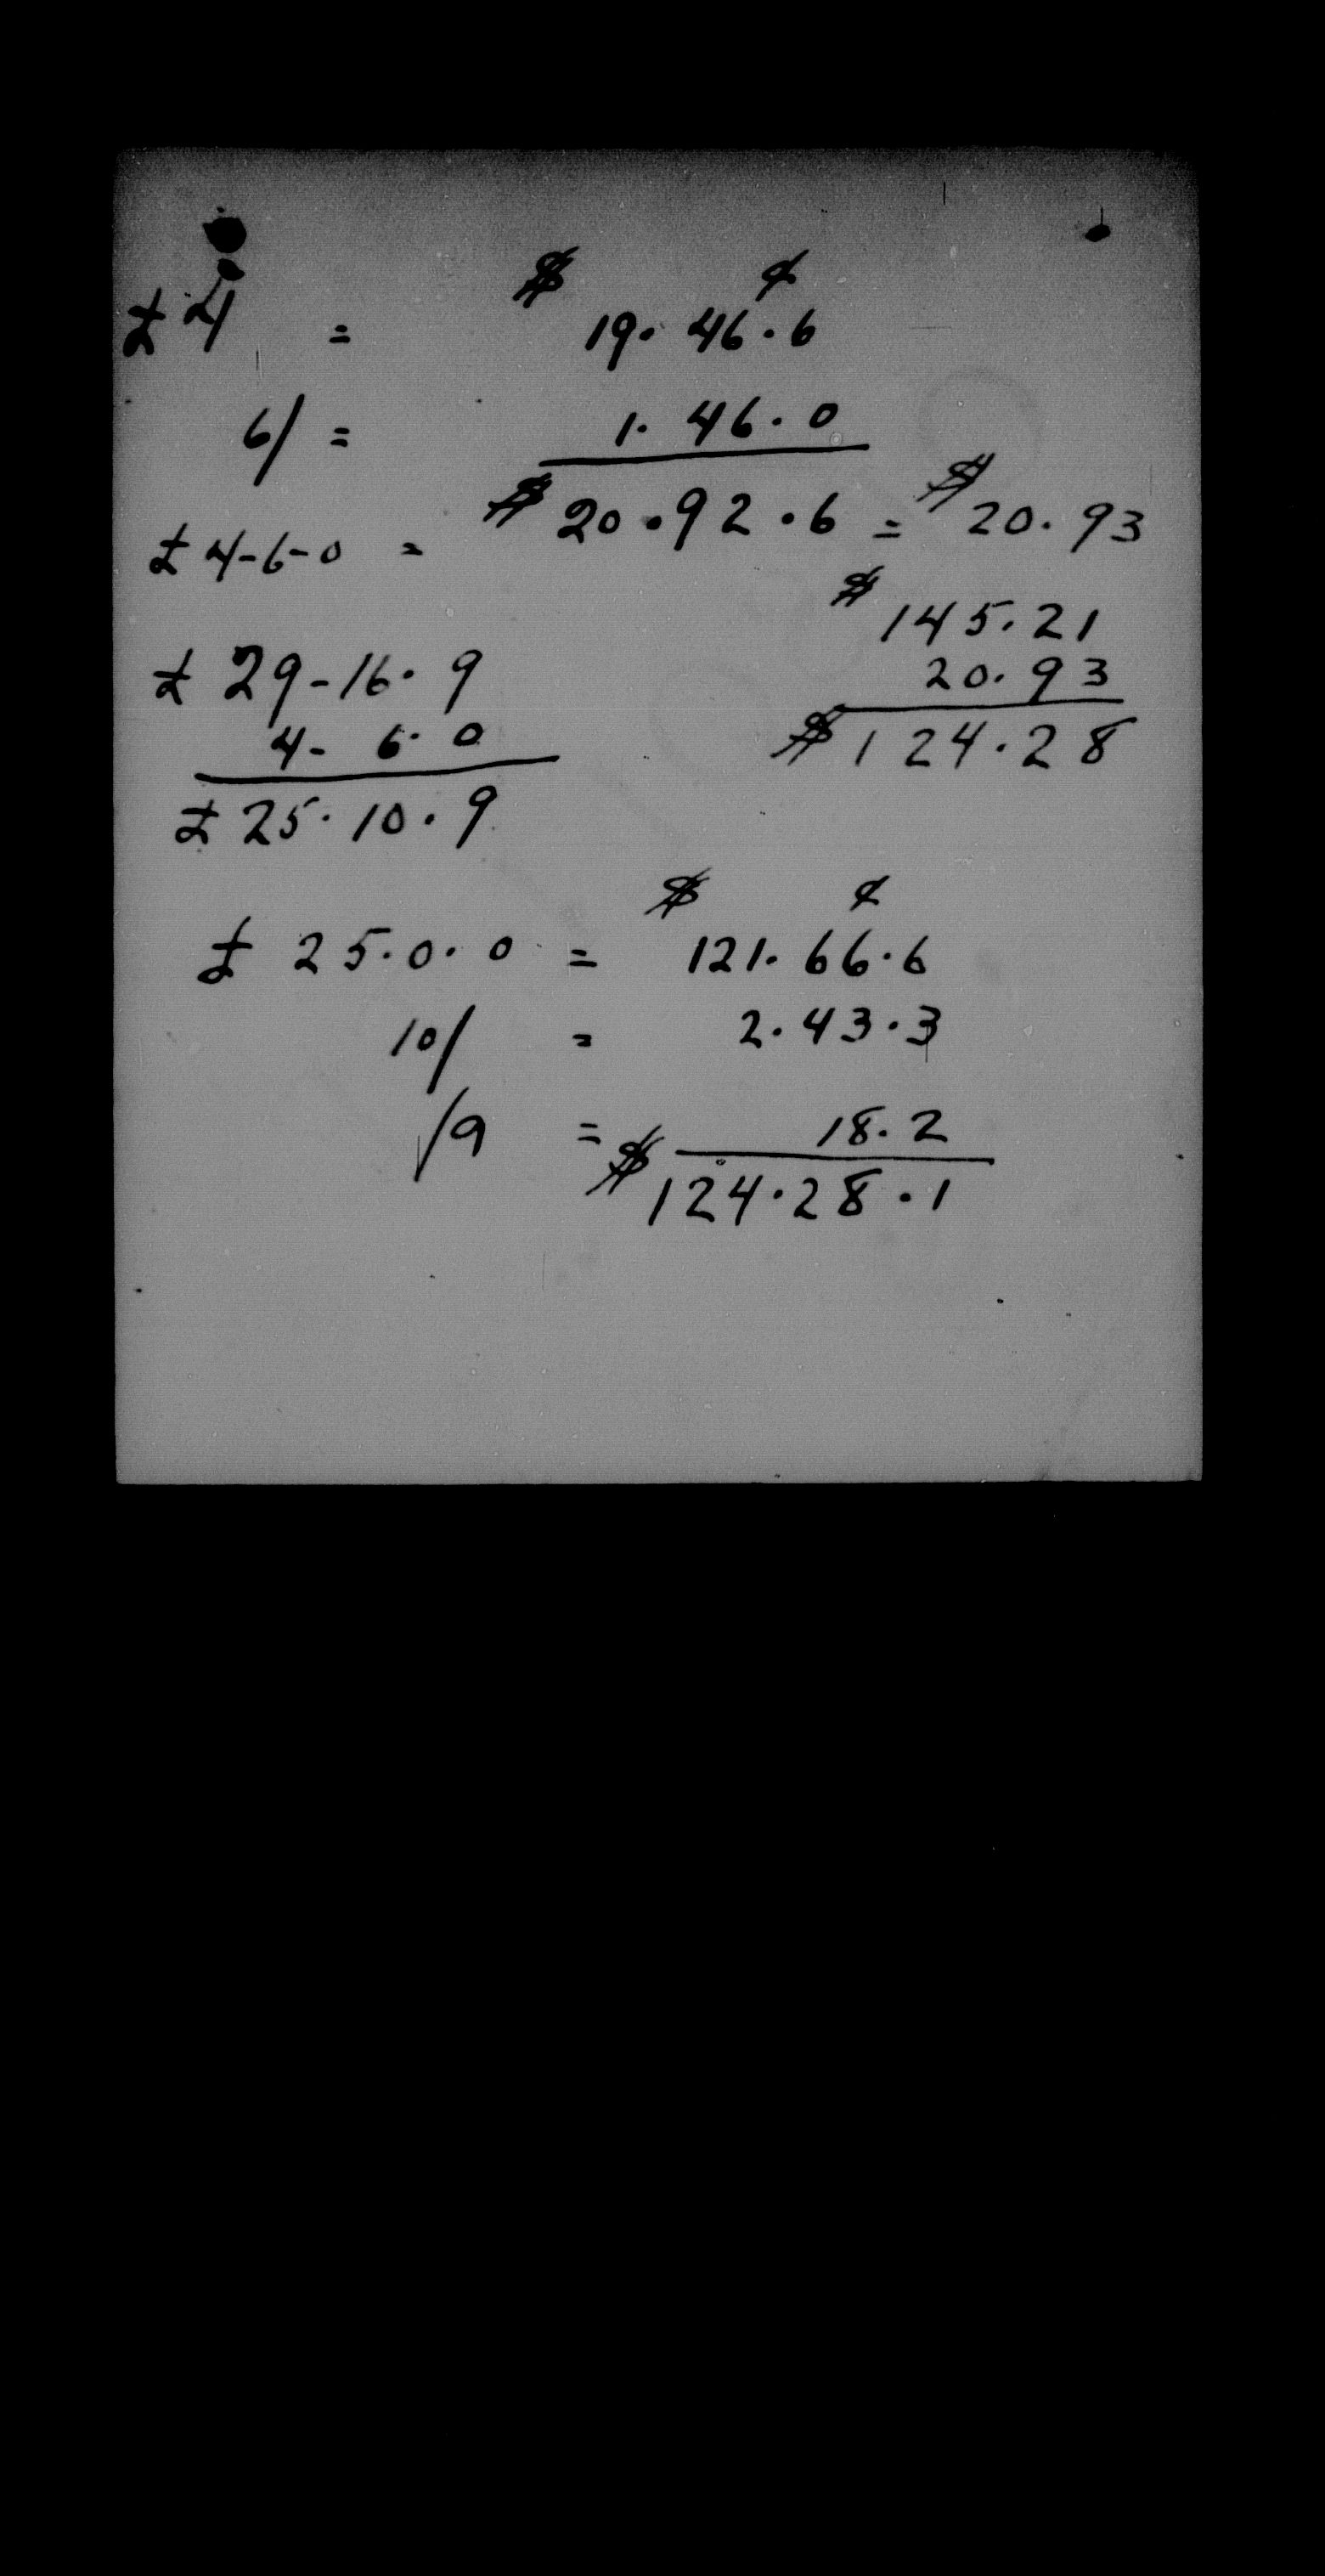 $ ¢
£4 = 19. 46.6
6/ = 1. 46.0
£4-6-0 = $20.92.6 = $20.93
$145.21
£ 29-16.9 20.93
4- 6.0 $124.28
£25.10.9
$ ¢
£ 25.0.0 = 121.66.6
10/ = 2.43.3
/9 = 18.2
$124.28.1